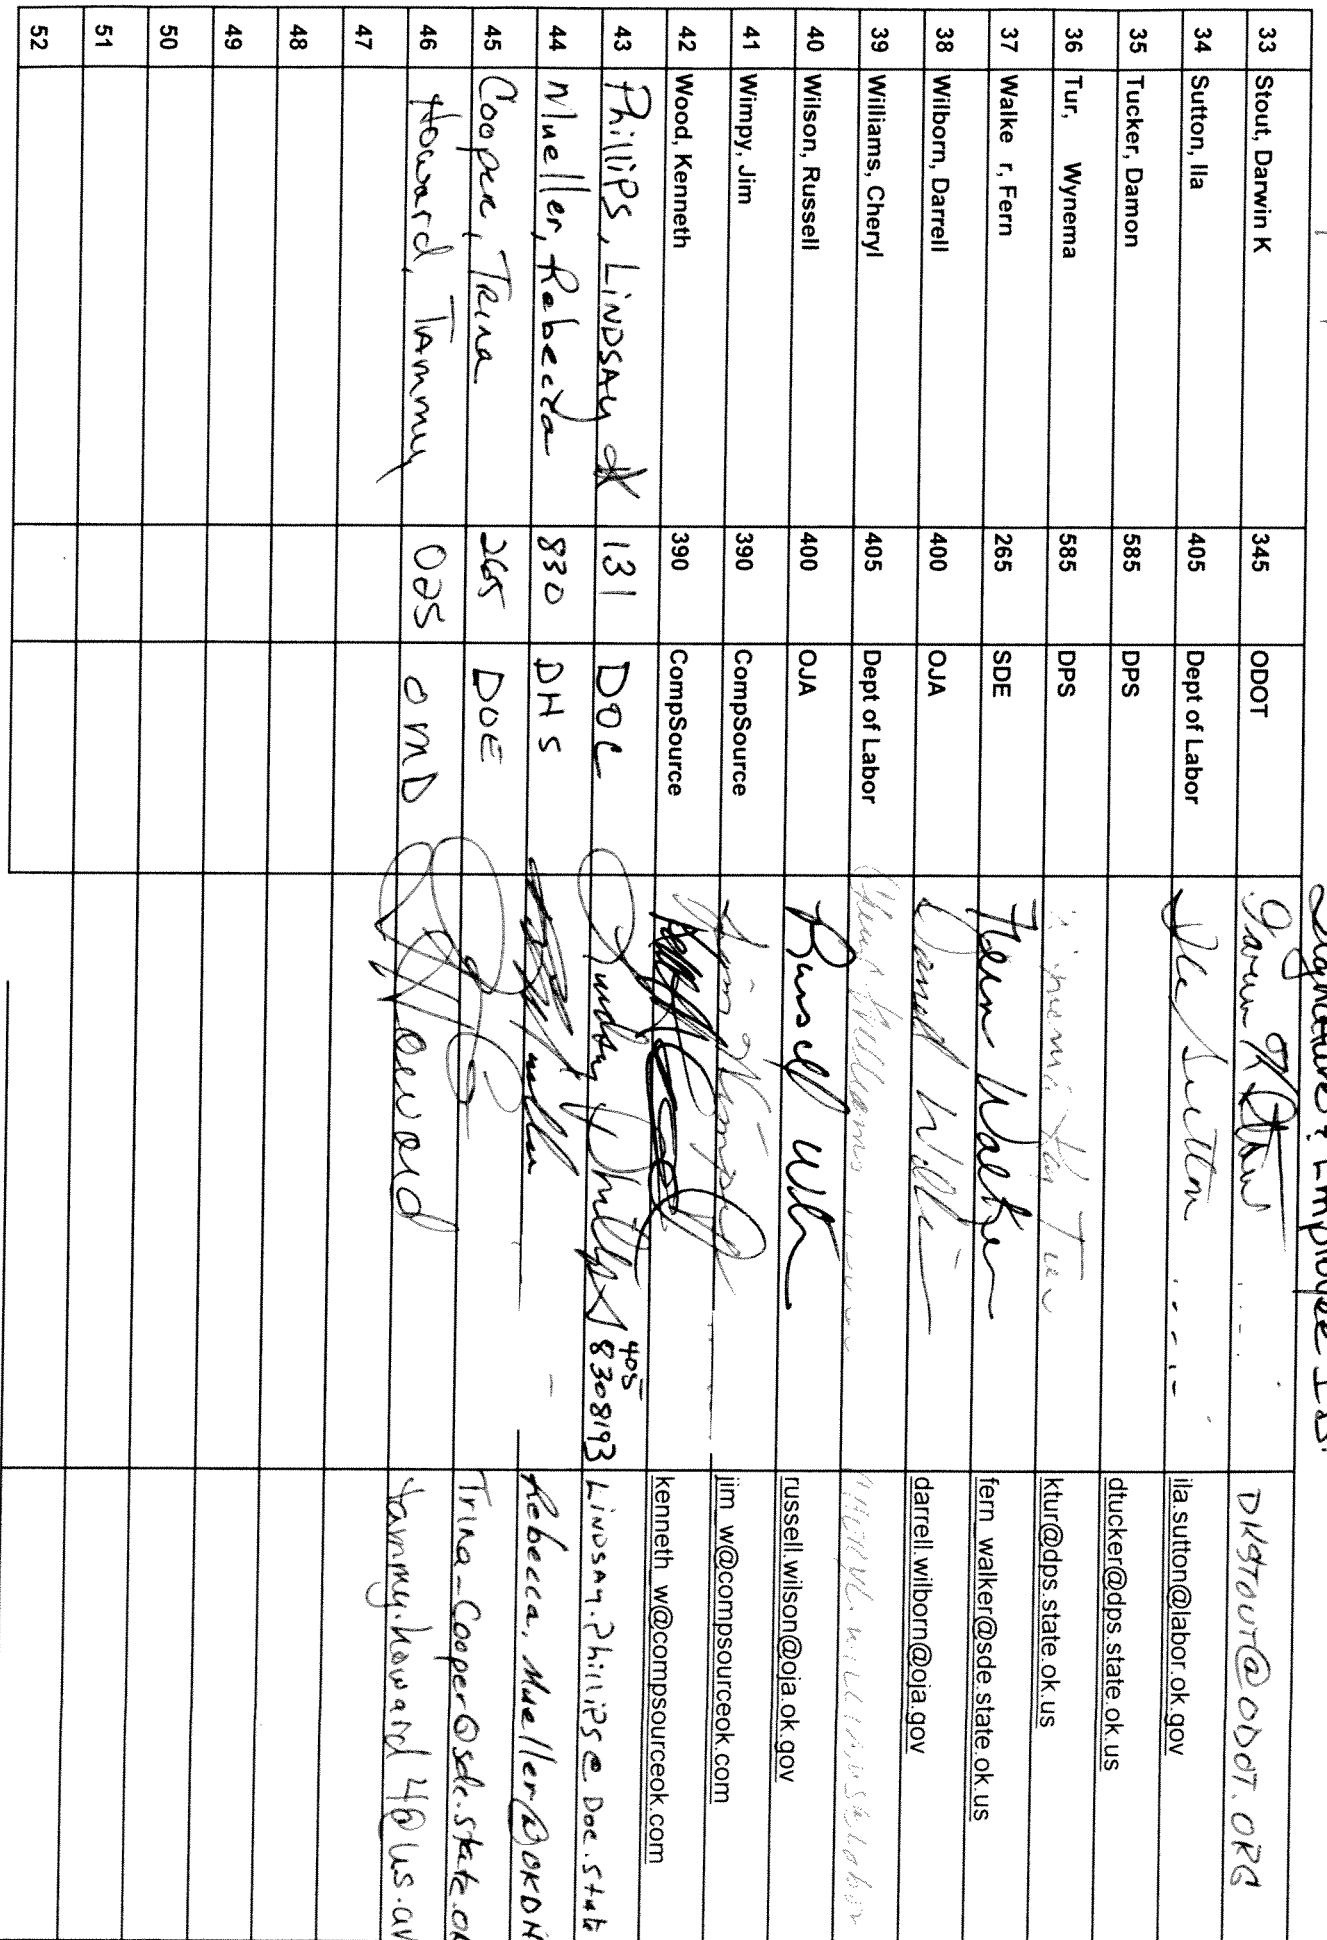 Signature & Employee I.D.
33 Stout, Darwin K 345 ODOT Darwin K Stout DKSTOUT@ODOT.ORG
34 Sutton, Ila 405 Dept of Labor Ila Sutton ila.sutton@labor.ok.gov
35 Tucker, Damon 585 DPS dtucker@dps.state.ok.us
36 Tur, Wynema 585 DPS Wynema Kay Tur ktur@dps.state.ok.us
37 Walke r, Fern 265 SDE Fern Walker fern_walker@sde.state.ok.us
38 Wilborn, Darrell 400 OJA darrell.wilborn@oja.gov
39 Williams, Cheryl 405 Dept of Labor Cheryl Williams
40 Wilson, Russell 400 OJA Russell russell.wilson@oja.ok.gov
41 Wimpy, Jim 390 CompSource Jim Wimpy jim_w@compsourceok.com
42 Wood, Kenneth 390 CompSource kenneth_w@compsourceok.com
43 Phillips, LINDSAY 131 DOC Lindsay Phillips 405 8308193 LINDSAY.Phillips@DOC.state
44 Mueller, Rebecca 830 DHS Rebecca.Mueller@OKDH
45 Cooper, Trina 265 DOE Trina-Cooper@sde.state.ok
46 Howard, Tammy 025 OMD Howard tammy.howard4@us.ar
47
48
49
50
51
52